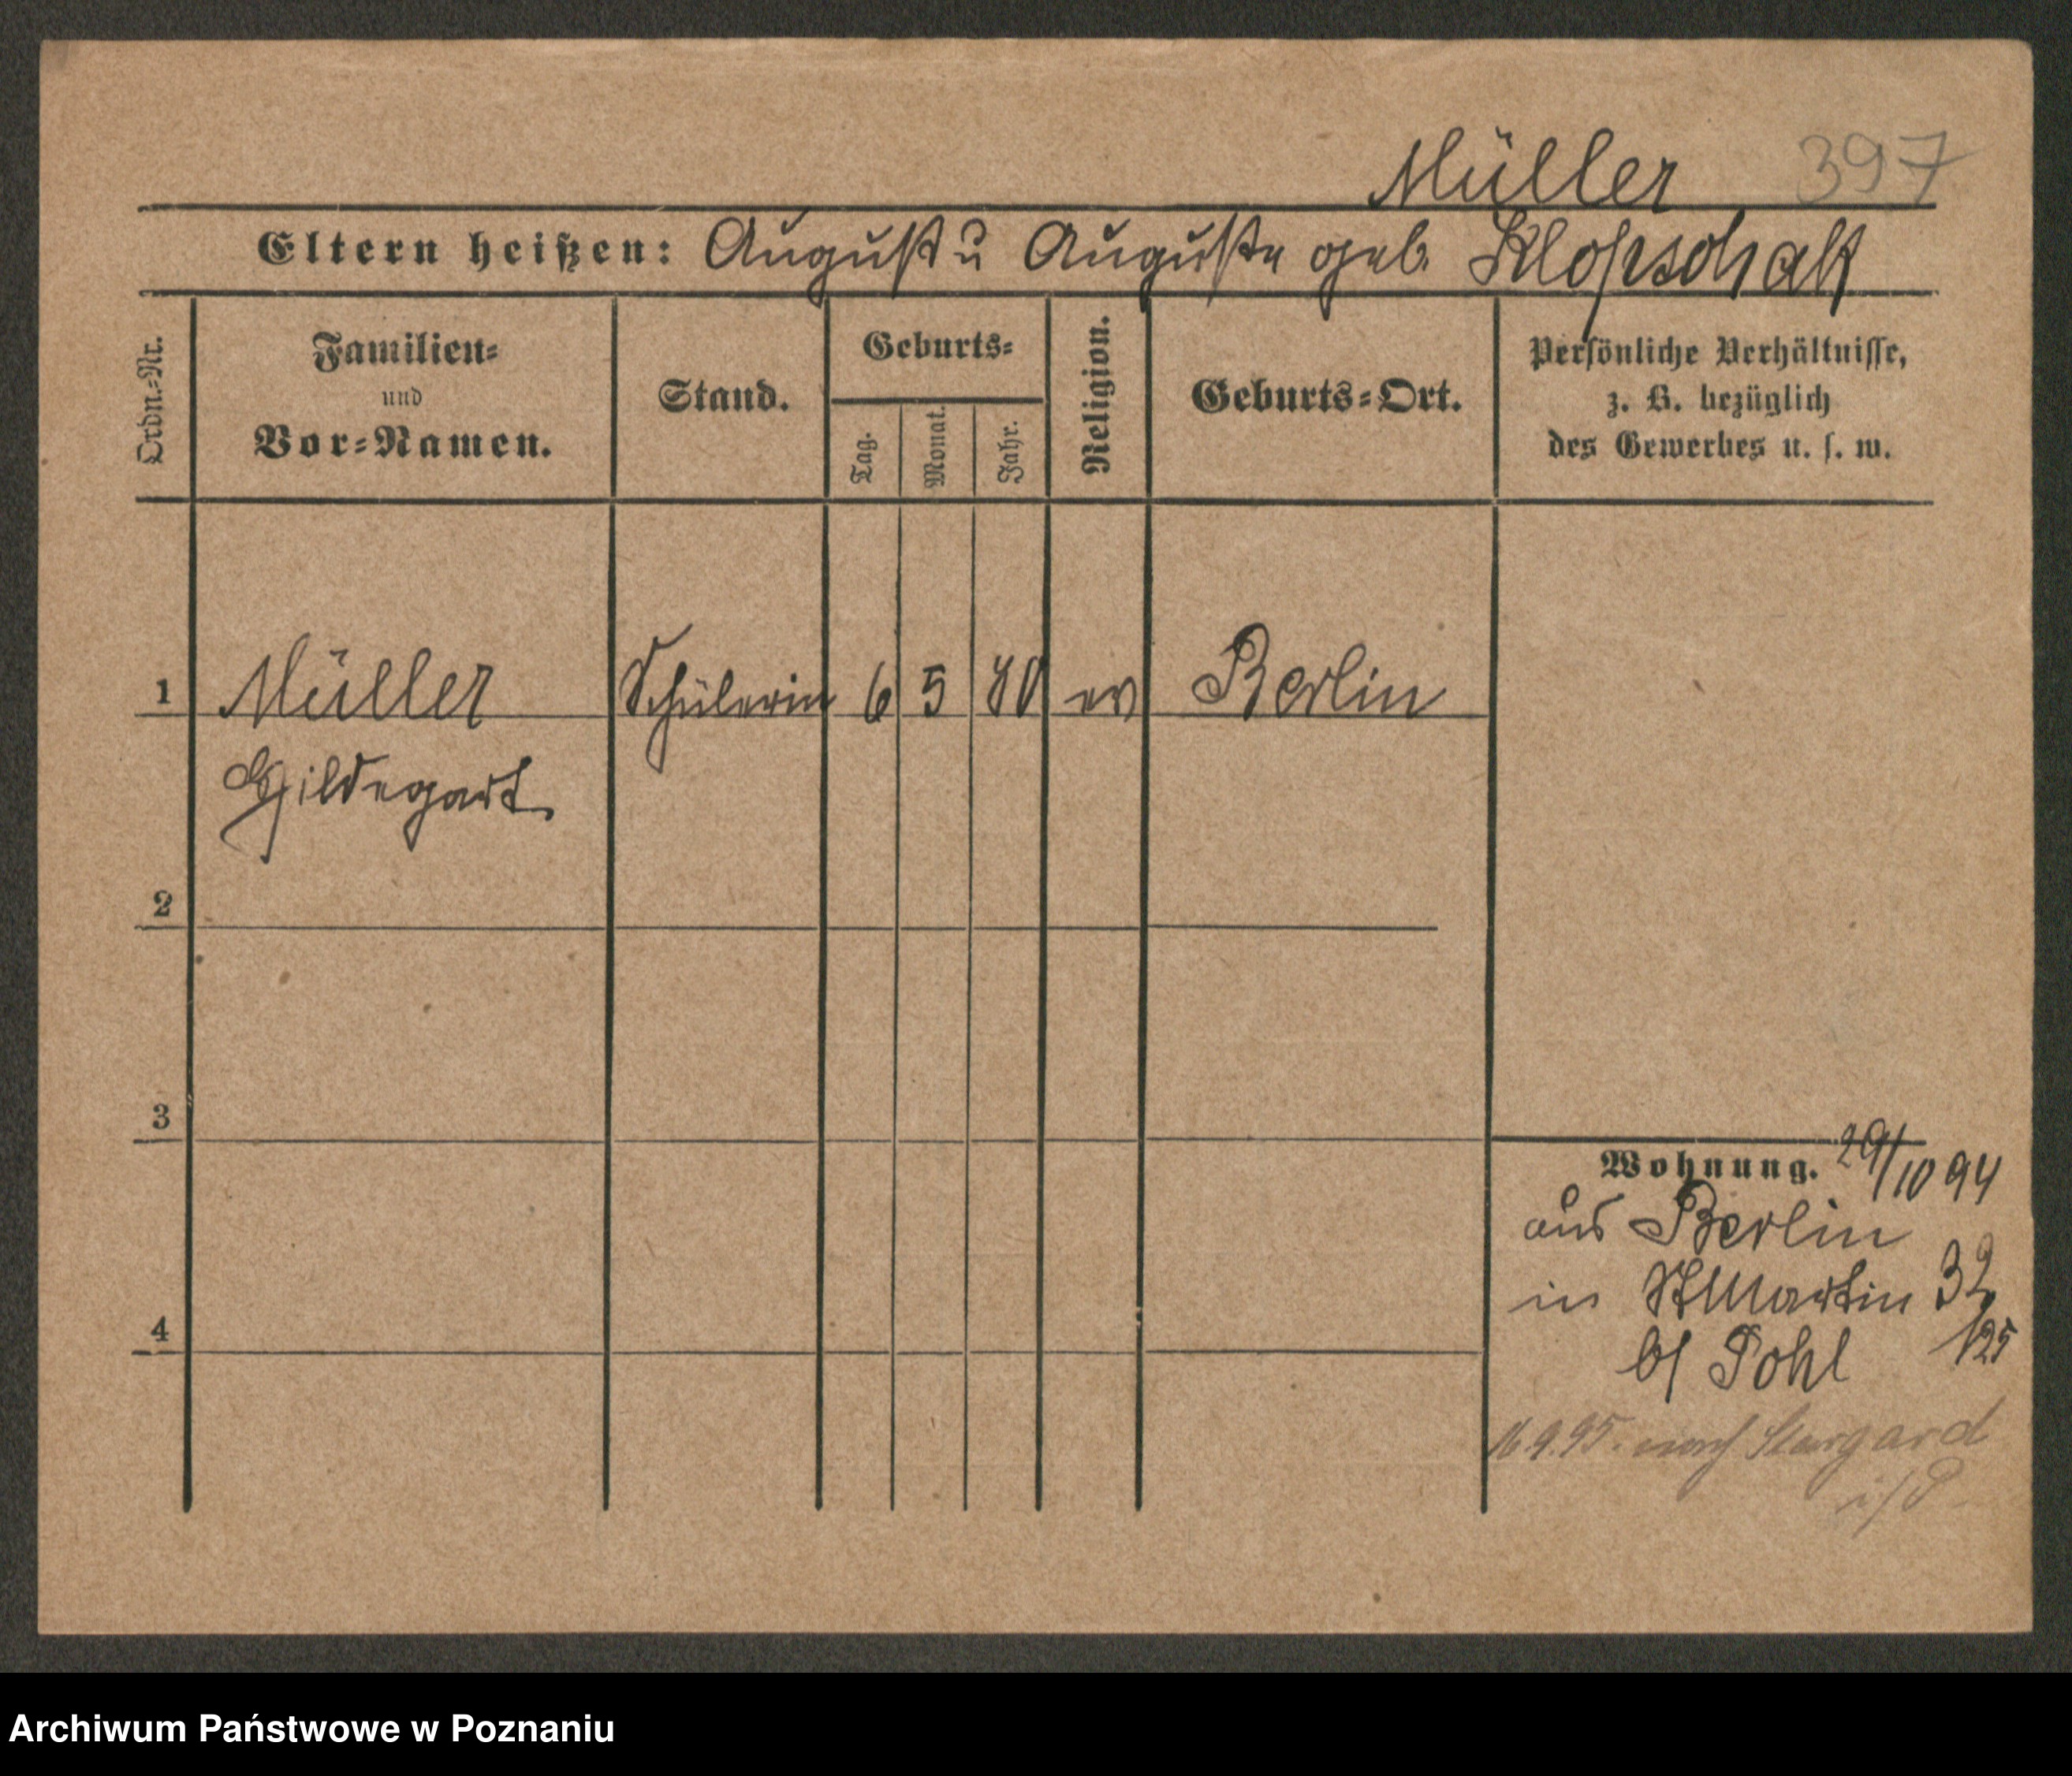 Müller 397
Eltern heißen: August u Auguste geb. Klopschak
Ordn.=Nr.
Familien=
und
Vor=Namen.
Stand.
Geburts=
Tag.
Monat.
Jahr.
Religion.
Geburts=Ort.
Persönliche Verhältnisse,
z. B. bezüglich
des Gewerbes u. s. w.
1 Müller Schülerin 6 5 80 ev Berlin
Hildegart
2
3
4
Wohnung. 29/10 94
aus Berlin
in St Martin 32
b/ Pohl /125
16.9.95. nach Stargard
i/P
Archiwum Państwowe w Poznaniu